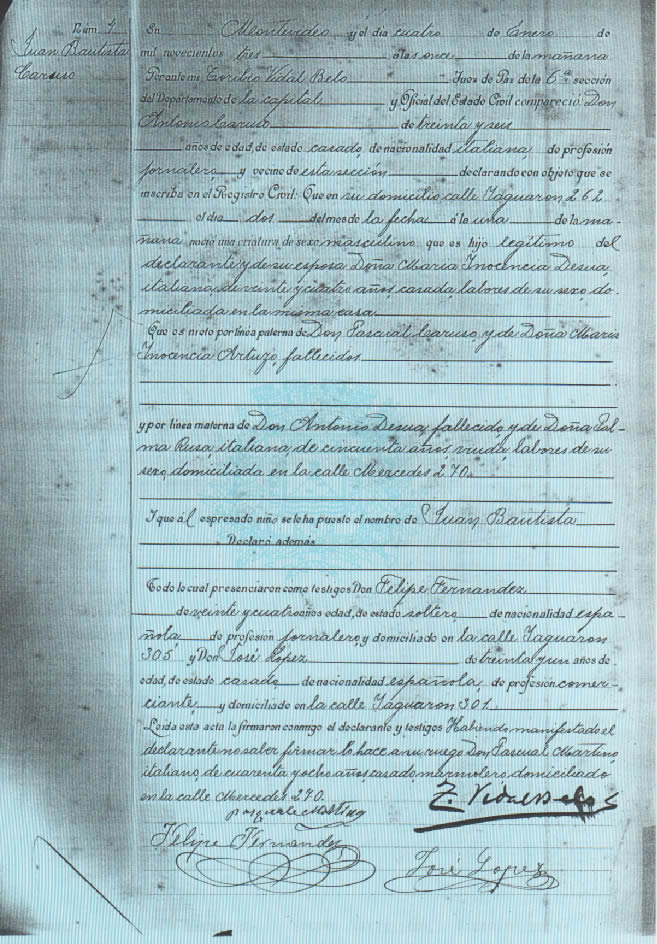 Núm. 4
Juan Bautista
Caruso
En Montevideo y el dia cuatro de Enero de
mil novecientos tres a las once de la mañana
Perante mi Vidal Belo Juez de Paz de la 6ª sección
del Departamento de la capital y Oficial del Estado Civil compareció Don
Antonio Caruso de treinta y seis
años de edad, de estado casado, de nacionalidad italiana, de profesión
jornalero, y vecino de esta sección declarando con objeto que se
inscriba en el Registro Civil: Que en su domicilio calle Yaguaron 262
el dia dos del mes de la fecha á la una de la ma-
ñana nació una criatura de sexo masculino que es hijo legítimo del
declarante y de su esposa Doña Maria Inocencia Desua,
italiana, de veinte y cuatro años, casada, labores de su sexo, do-
miciliada en la misma casa.
Que es nieto por línea paterna de Don Pascual Caruso, y de Doña Maria
Inocencia Artuzo, fallecidos
y por línea materna de Don Antonio Desua, fallecido, y de Doña Pal-
ma Rusa, italiana, de cincuenta años, viuda, labores de su
sexo, domiciliada en la calle Mercedes 270.
I que ál espresado niño se le ha puesto el nombre de Juan Bautista
Declaró además
Todo lo cual presenciaron como testigos Don Felipe Fernandez
de veinte y cuatro años edad, de estado soltero de nacionalidad espa-
ñola de profesión jornalero, y domiciliado en la calle Yaguaron
305 y Don José Lopez de treinta y un años de
edad, de estado casado de nacionalidad española, de profesión comer-
ciante, y domiciliado en la calle Yaguaron 301.
Leida esta acta la firmaron conmigo el declarante y testigos Habiendo manifestado el
declarante no saber firmar lo hace a su ruego Don Pascual Martino,
italiano, de cuarenta y ocho años casado, marmolero, domiciliado
en la calle Mercedes 270.
T. Vidal Belo
Felipe Fernandez
José Lopez